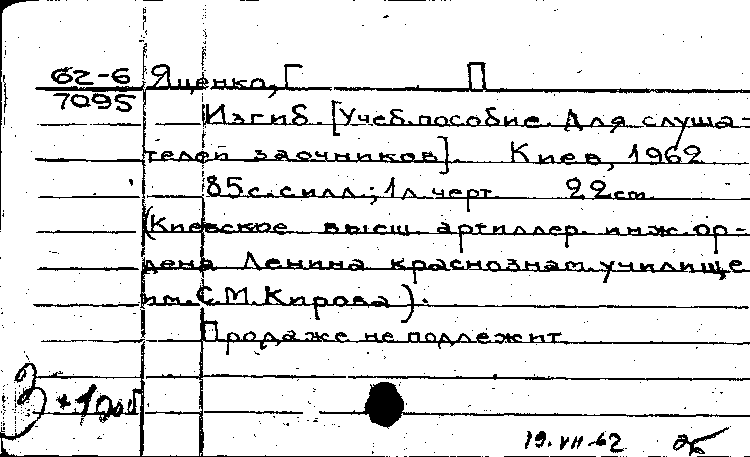 62-6 Яценко, Г П
7095
Изгиб. [Учеб. пособие. Для слуша-
телей заочников]. Киев, 1962
85 с. с илл.; 1 л. черт. 22 см.
(Киевское высш. артиллер. инж. ор-
дена Ленина краснознам. училище
им. С. М. Кирова).
Продаже не подлежит
3 +1
19. VII-62